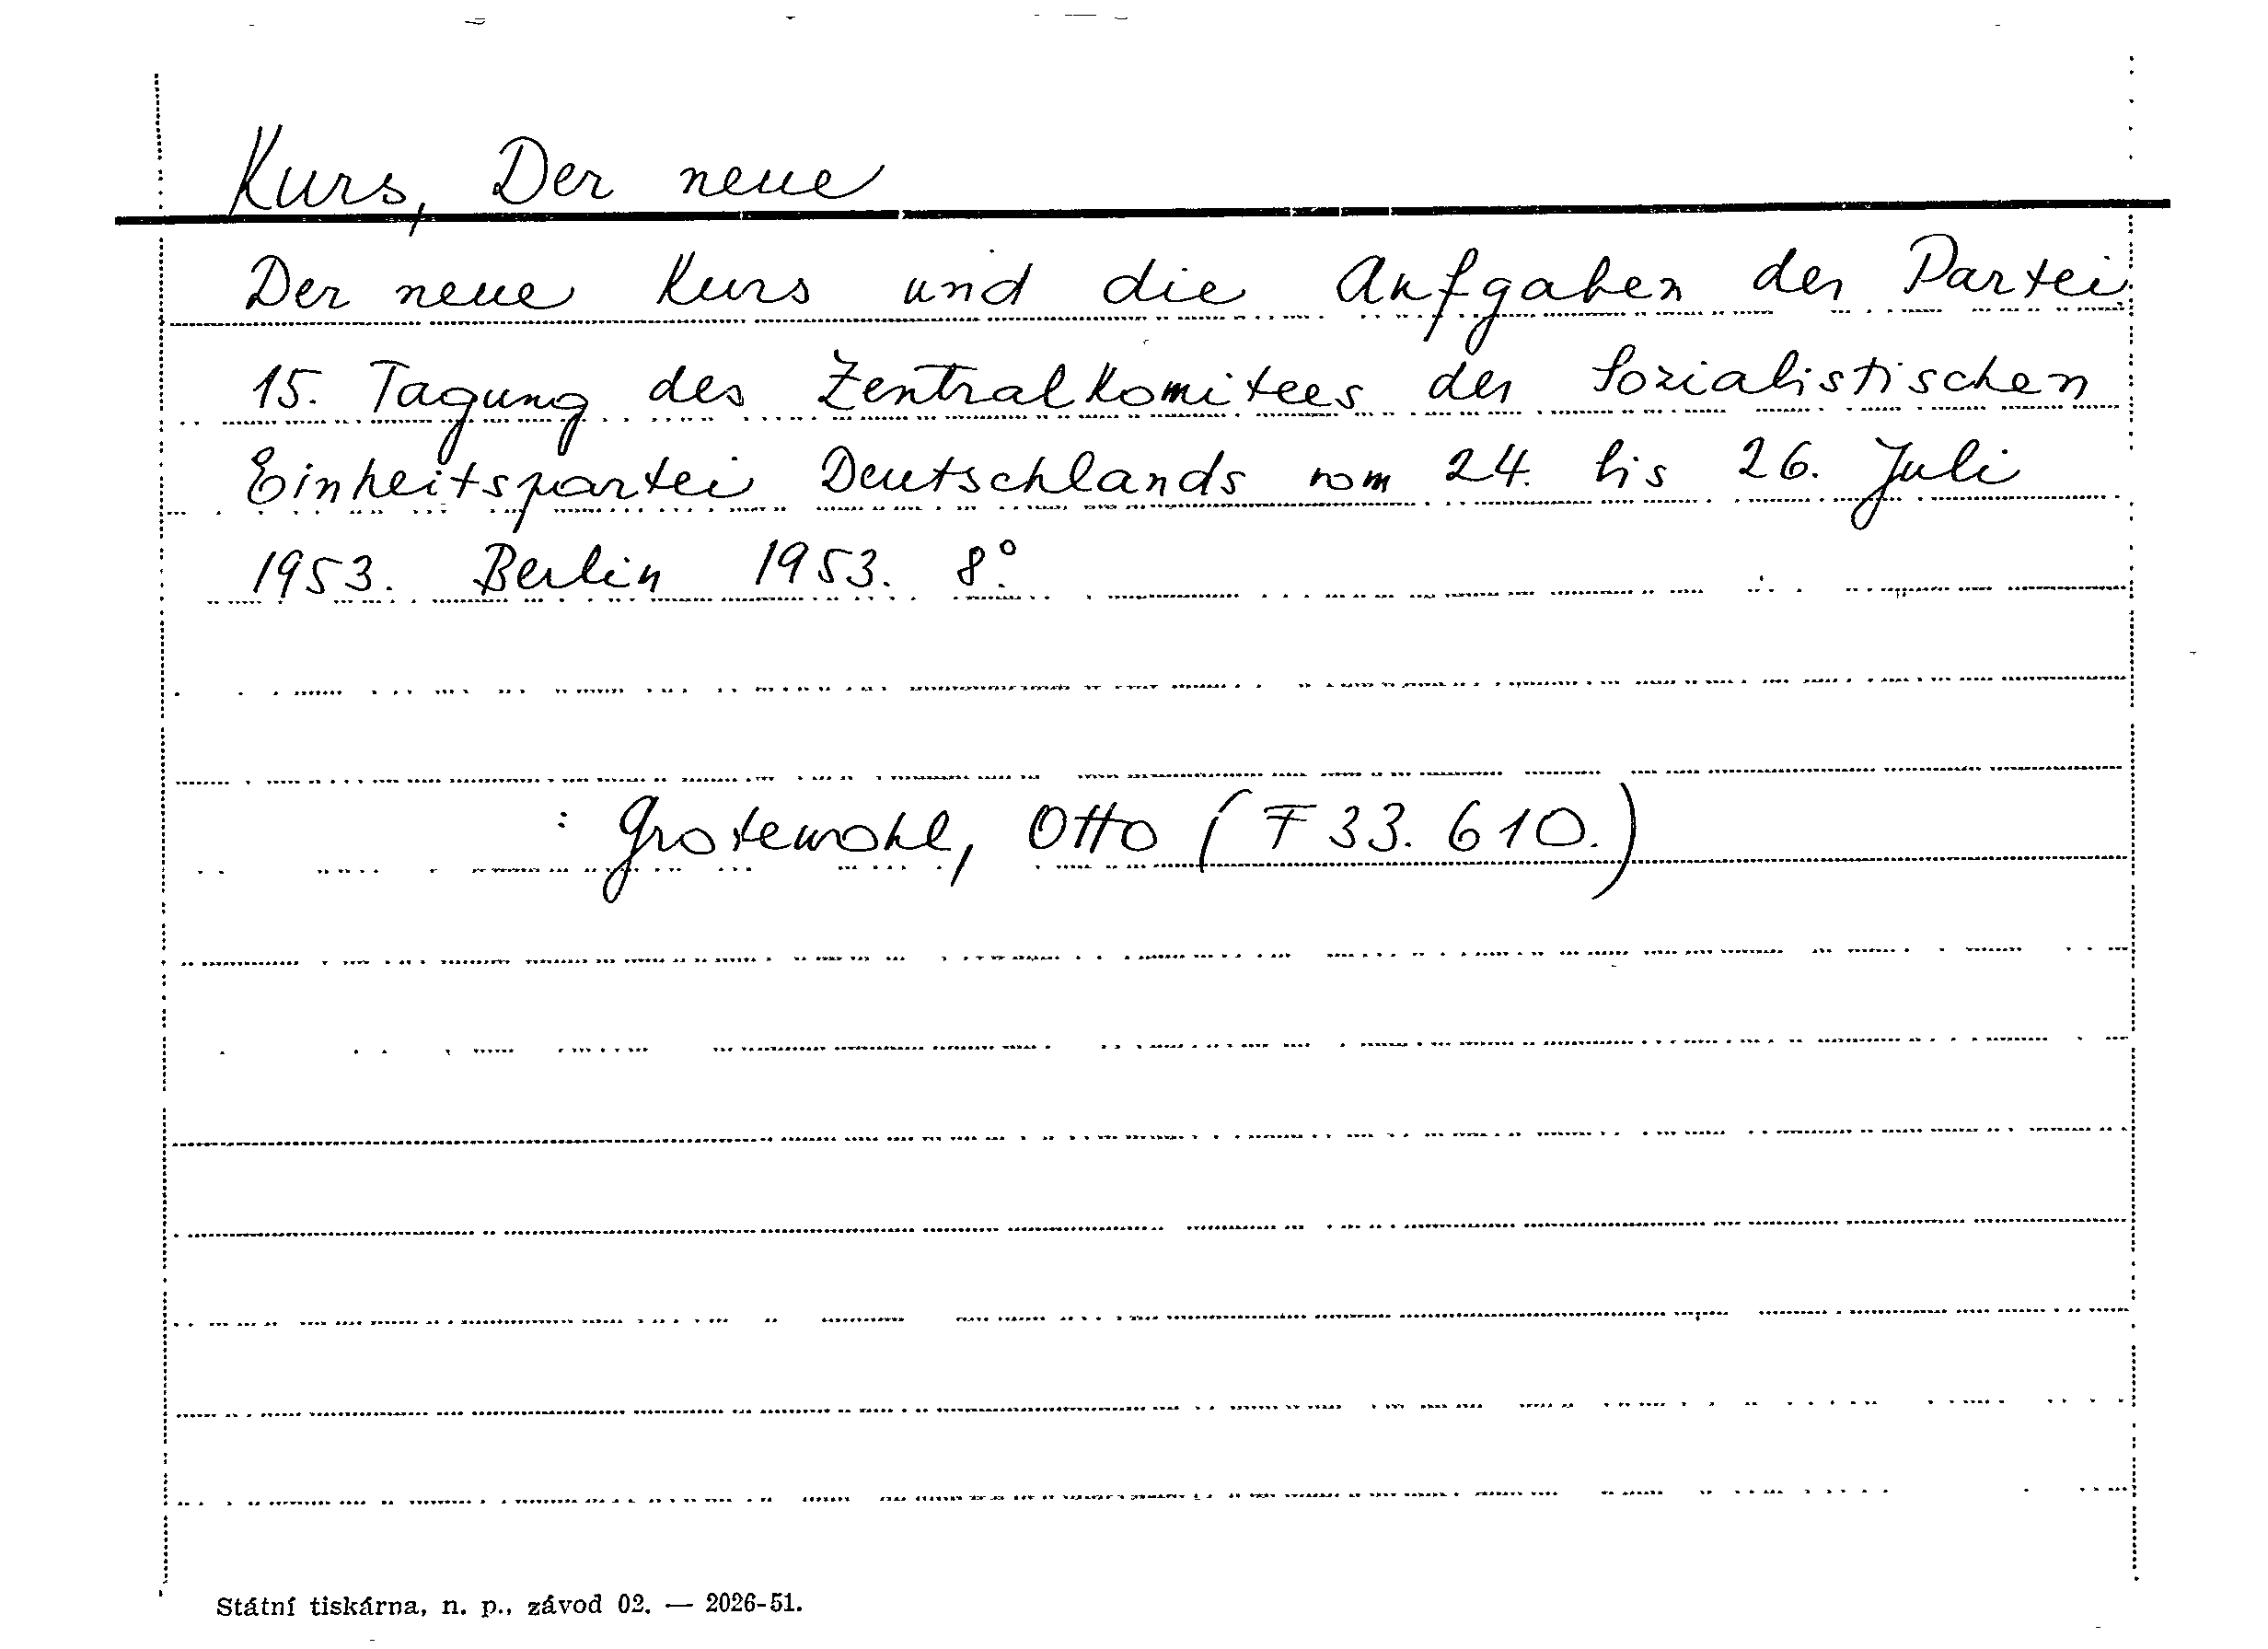 Kurs, Der neue
Der neue Kurs und die Aufgaben der Partei.
15. Tagung des Zentralkomitees der Sozialistischen
Einheitspartei Deutschlands vom 24. bis 26. Juli
1953. Berlin 1953. 8°.
: Grotewohl, Otto (F 33.610.)
Státní tiskárna, n. p., závod 02. — 2026-51.